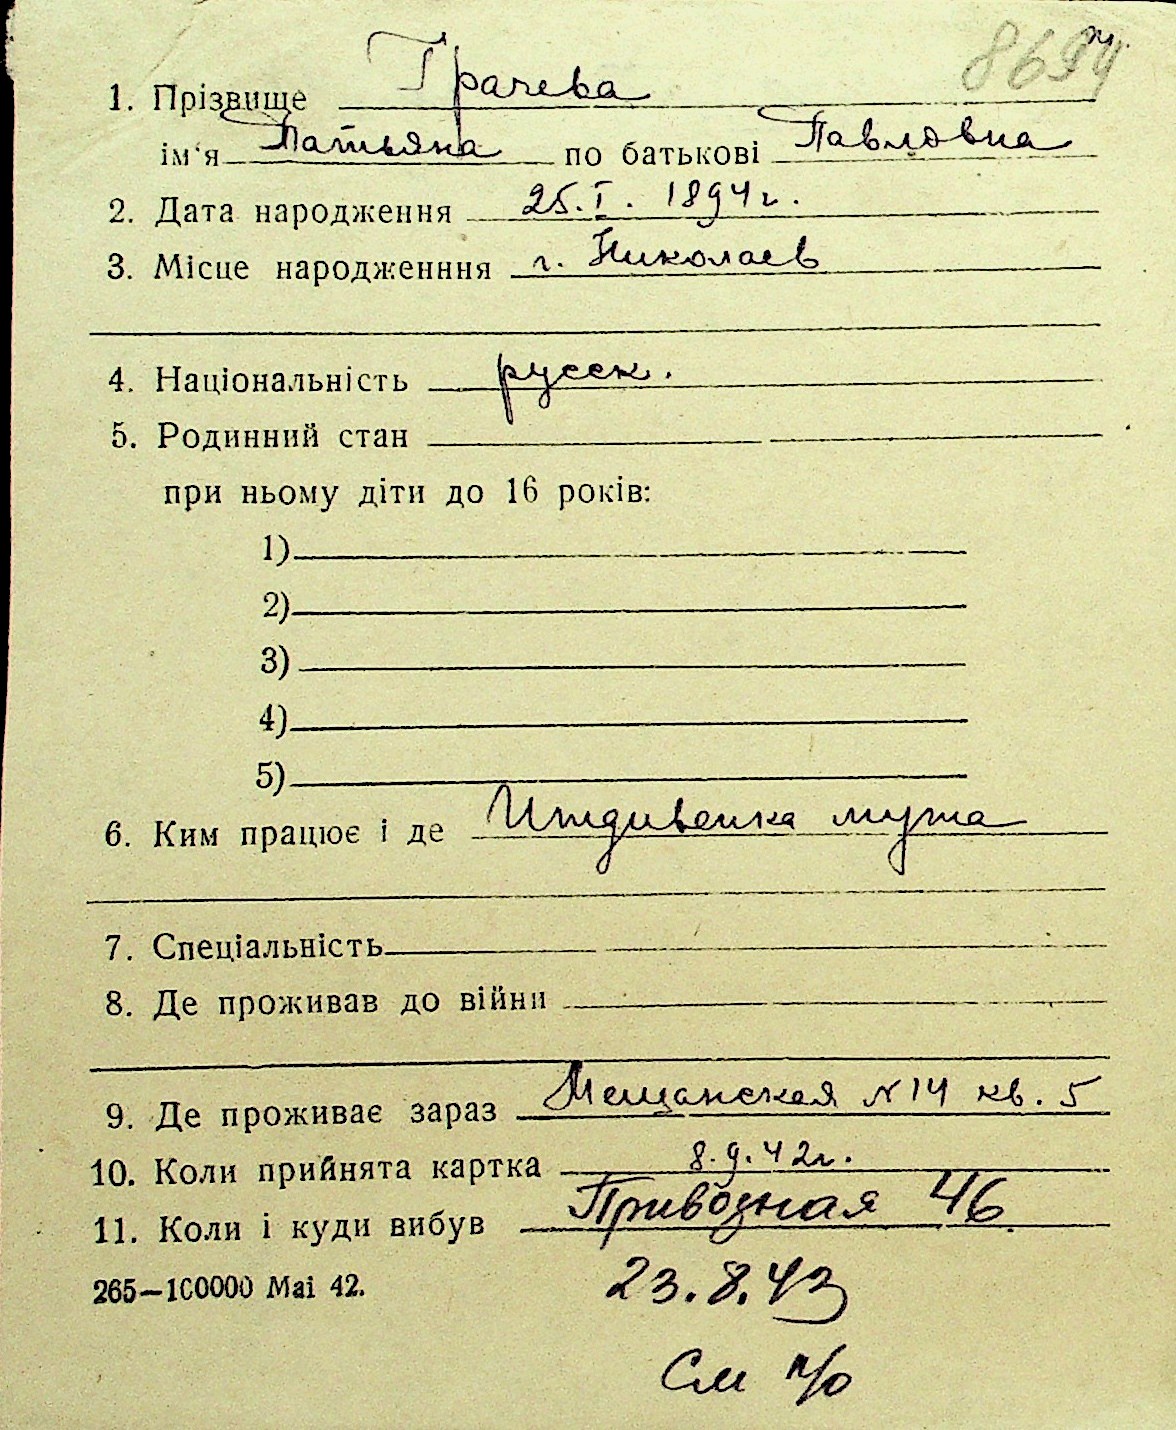 8694
1. Прізвище Грачева
ім‘я Татьяна по батькові Павловна
2. Дата народження 25.I. 1894 г.
3. Місце народженння г. Николаев
4. Національність русск.
5. Родинний стан
при ньому діти до 16 років:
1)
2)
3)
4)
5)
6. Ким працює і де Иждивенка мужа
7. Спеціальність
8. Де проживав до війни
9. Де проживає зараз Мещанская N 14 кв. 5
10. Коли прийнята картка 8.9.42г.
11. Коли і куди вибув Приводная 46
265—100000 Mai 42.
23.8.43
См н/о